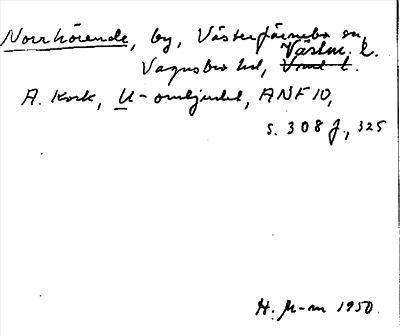 Norrhörende, by, Västerfärnebo sn,
Västm. l.
Vagnsbro hd, Vml l.
A. Kock, U-omljudet, ANF 10,
s. 308 f., 325
H. M-m 1950.